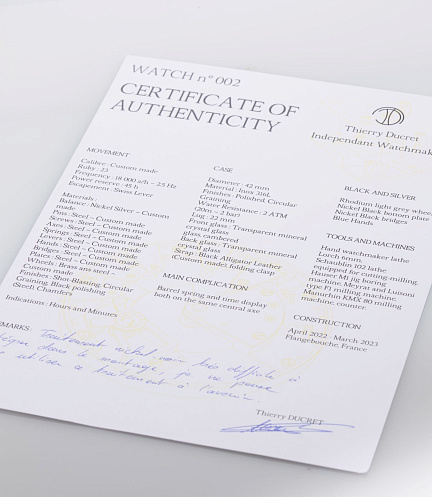 WATCH n° 002
CERTIFICATE OF
AUTHENTICITY
Thierry Ducret
Independent Watchmak
MOVEMENT
Calibre : Custom made
Ruby : 23
Frequency : 18 000 a/h - 2.5 Hz
Power reserve : 45 h
Escapement : Swiss Lever
Materials :
Balance : Nickel Silver – Custom
made
Pins : Steel – Custom made
Screws : Steel – Custom made
Axes : Steel – Custom made
Springs : Steel – Custom made
Levers : Steel – Custom made
Hands : Steel – Custom made
Bridges : Steel – Custom made
Plates : Steel – Custom made
Wheels : Brass ans steel –
Custom made
Finishes : Shot-Blasting, Circular
Graining, Black polishing
(Steel), Chamfers
Indications : Hours and Minutes
CASE
Diameter : 42 mm
Material : Inox 316L
Finishes : Polished, Circular
Graining
Water Resistance : 2 ATM
(20m – 2 bar)
Lug : 22 mm
Front glass : Transparent mineral
crystal glass
glass cambered
Back glass : Transparent mineral
crystal glass
Strap : Black Alligator Leather
(Custom made) folding clasp
MAIN COMPLICATION
Barrel spring and time display
both on the same central axe
BLACK AND SILVER
Rhodium light grey whee
Nickel Black bottom plate
Nickel Black bridges
Blue Hands
TOOLS AND MACHINES
Hand watchmaker lathe
Lorch 6mm,
Schaublin 102 lathe
equipped for cutting-milling,
Hauser M1 jig boring
machine, Meyrat and Luisoni
type F1 milling machine,
Manurhin KMX 80 milling
machine, counter
CONSTRUCTION
April 2022 - March 2023
Flangebouche, France
MARKS : Traitement nickel noir très difficile à
dans le montage, je ne pense
utiliser ce traitement à l'avenir.
Thierry DUCRET